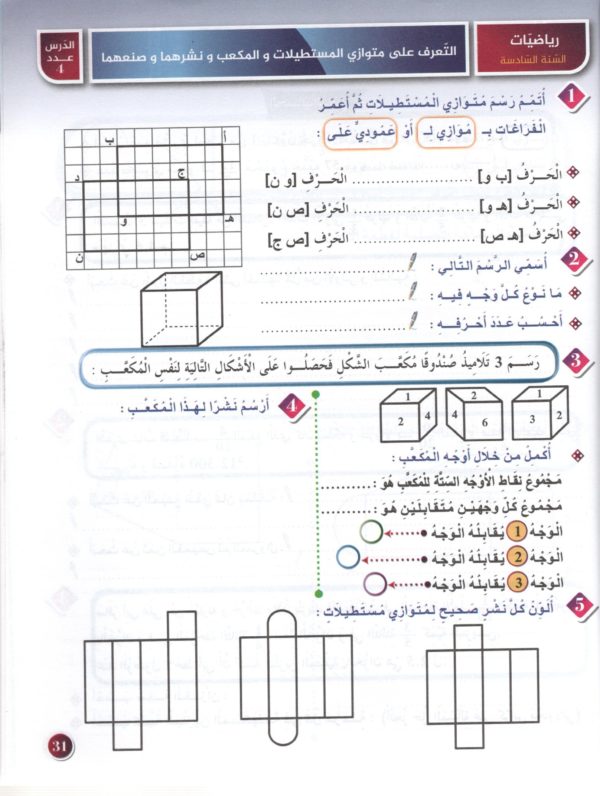 رياضيّات
السّنة السّادسة
التّعرف على متوازي المستطيلات و المكعب و نشرهما و صنعهما
الدّرس
عــدد
4
1 أُتَمِّمُ رَسْمَ مُتَوَازِي الْمُسْتَطِيلَاتِ ثُمَّ أُعَمِّرُ
الْفَرَاغَاتِ بِـ مُوَازِي لِـ أَوْ عَمُودِيٌّ عَلَى :
أ
ب
ج
د
هـ
و
ص
ن
الْحَرْفُ [ب و] .................... الْحَرْفِ [و ن]
الْحَرْفُ [هـ و] .................... الْحَرْفِ [ص ن]
الْحَرْفُ [هـ ص] .................... الْحَرْفِ [ص ج]
2 أُسَمِّي الرَّسْمَ التَّالِي : ....................
مَا نَوْعُ كُلِّ وَجْهٍ فِيهِ : ....................
أَحْسُبُ عَدَدَ أَحْرُفِهِ : ....................
3 رَسَمَ 3 تَلَامِيذُ صُنْدُوقًا مُكَعَّبَ الشَّكْلِ فَحَصَلُوا عَلَى الْأَشْكَالِ التَّالِيَةِ لِنَفْسِ الْمُكَعَّبِ :
1 2 4
2 4 6
1 3 2
أُكْمِلُ مِنْ خِلَالِ أَوْجُهِ الْمُكَعَّبِ :
مَجْمُوعُ نِقَاطِ الْأَوْجُهِ السِّتَّةِ لِلْمُكَعَّبِ هُوَ ............
مَجْمُوعُ كُلِّ وَجْهَيْنِ مُتَقَابِلَيْنِ هُوَ ............
الْوَجْهُ 1 يُقَابِلُهُ الْوَجْهُ
الْوَجْهُ 2 يُقَابِلُهُ الْوَجْهُ
الْوَجْهُ 3 يُقَابِلُهُ الْوَجْهُ
4 أَرْسُمُ نَشْرًا لِهَذَا الْمُكَعَّبِ :
5 أُلَوِّنُ كُلَّ نَشْرٍ صَحِيحٍ لِمُتَوَازِي مُسْتَطِيلَاتٍ :
31